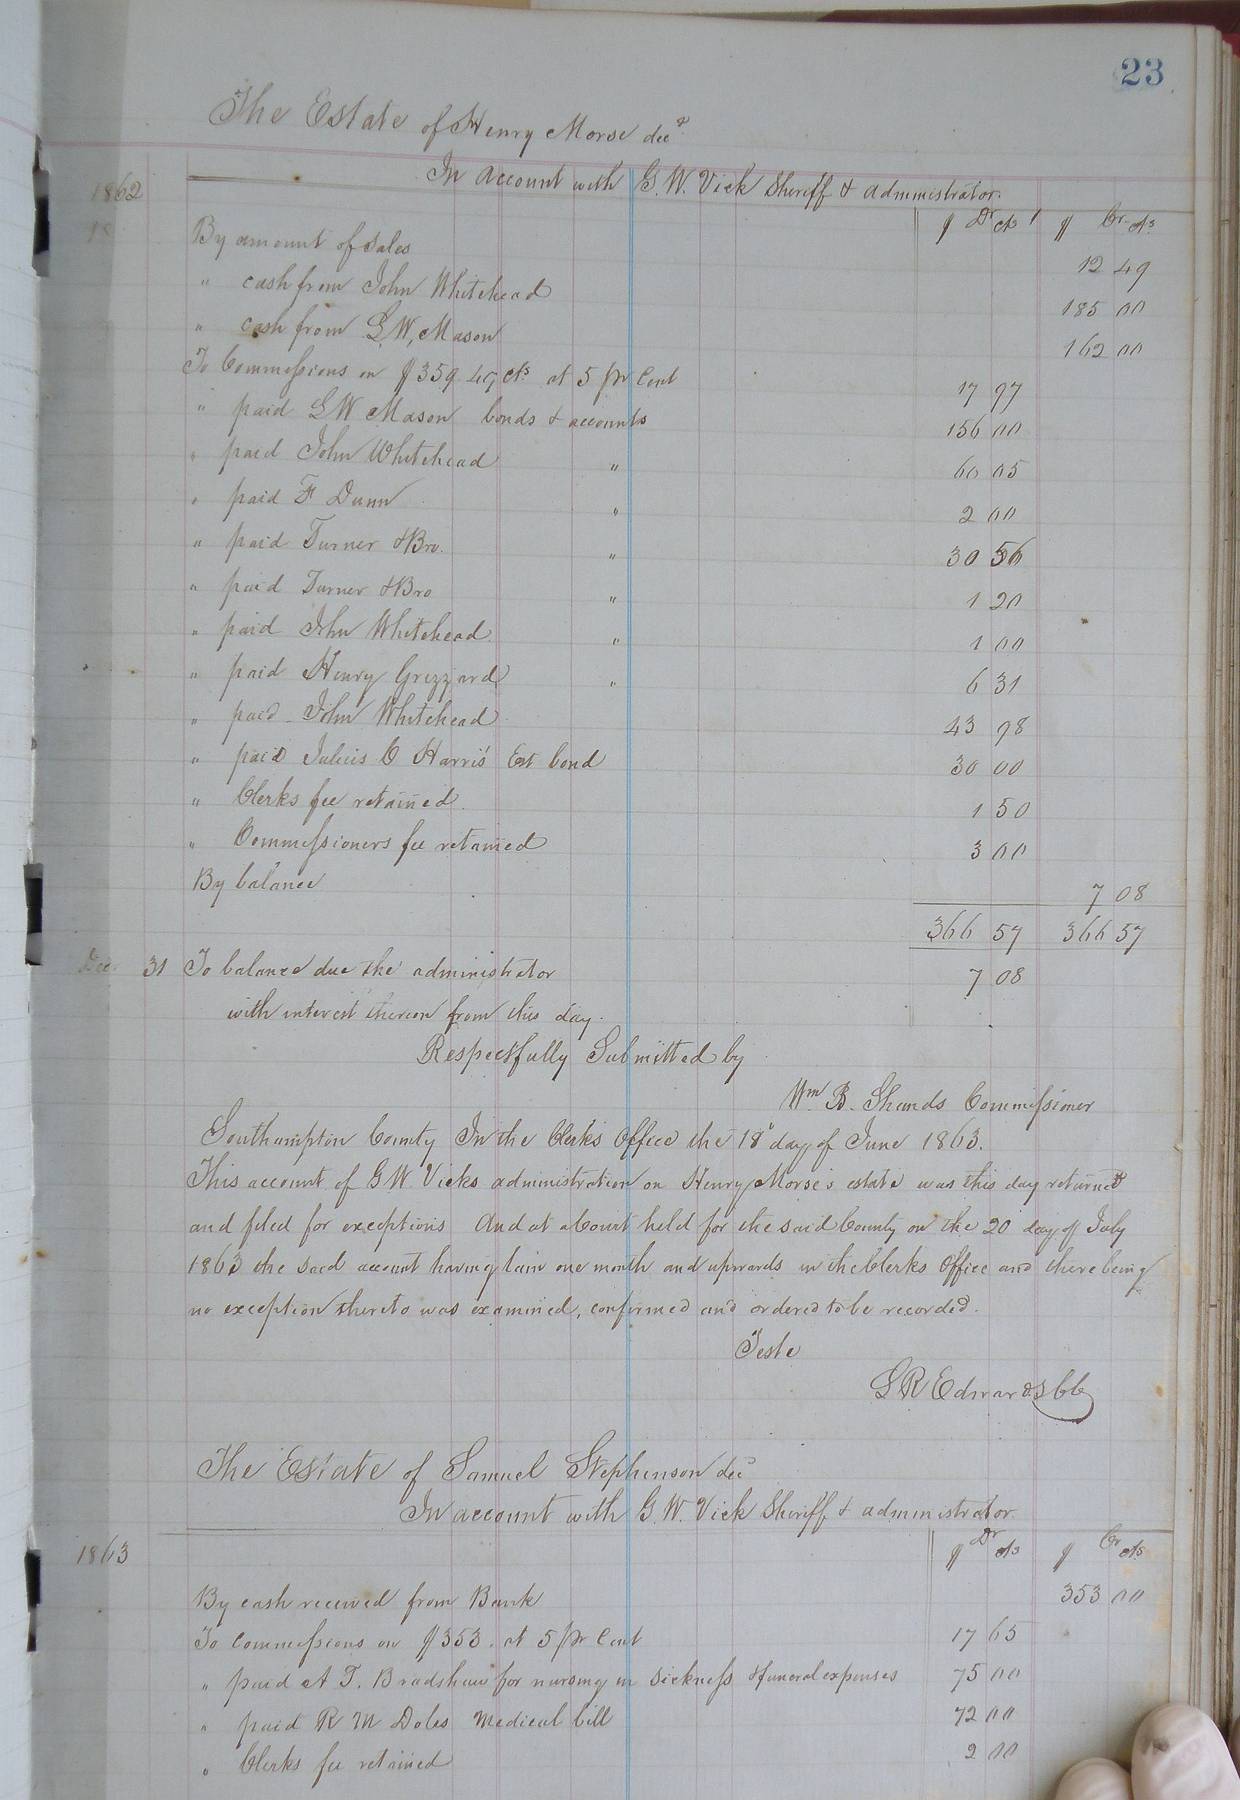 23
The Estate of Henry Morse decd
In account with G. W. Vick Sheriff & administrator.
1862
$ Dr cts $ Cr cts
By amount of sales 12 49
" cash from John Whitehead 185 00
" cash from L W, Mason 162 00
To Commissions on $359 49 cts at 5 pr Cent 17 97
" paid L W Mason bonds & accounts 156 00
" paid John Whitehead " 60 05
" paid F Dunn " 2 00
" paid Turner & Bro. " 30 56
" paid Turner & Bro " 1 20
" paid John Whitehead " 1 00
" paid Henry Grizzard " 6 31
" paid John Whitehead 43 98
" paid Julius C Harris' Est bond 30 00
" Clerks fee retained 1 50
" Commissioners fee retained 3 00
By balance 7 08
366 57 366 57
Dec. 31 To balance due the administrator 7 08
with interest thereon from this day.
Respectfully Submitted by
Wm B. Shands Commissioner
Southampton County In the Clerk's Office the 18" day of June 1863.
This account of G W Vicks administration on Henry Morse's estate was this day returned
and filed for exceptions And at a Court held for the said County on the 20 day of July
1863 the said account having lain one month and upwards in the Clerks Office and there being
no exception thereto was examined, confirmed and ordered to be recorded.
Teste
L R Edwards CC
The Estate of Samuel Stephenson decd
In account with G. W. Vick Sheriff & administrator
1863
$ Dr cts $ Cr cts
By cash received from Bank 353 00
To commissions on $353. at 5 pr Cent 17 65
" paid A T. Bradshaw for nursing in sickness & funeral expenses 75 00
" paid R M Doles Medical bill 72 00
" Clerks fee retained 2 00